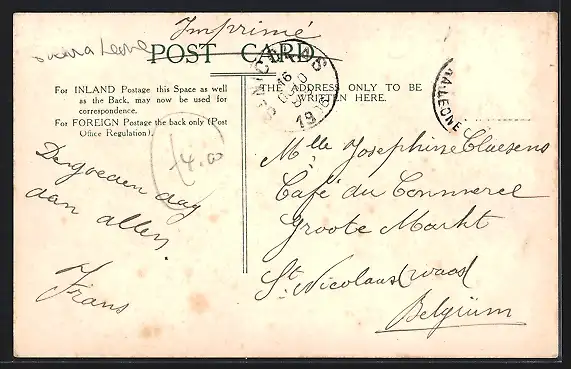 Imprimé
Sierra Leone
POST CARD
For INLAND Postage this Space as well
as the Back, may now be used for
correspondence.
For FOREIGN Postage the back only (Post
Office Regulation).
THE ADDRESS ONLY TO BE
WRITTEN HERE.
ST NICOLAS
16
19
RA LEONE
4.00
Den goeden dag
aan allen.
Frans
Mlle Josephine Claesens
Café du Commerce
Groote Markt
St. Nicolaas (waas)
Belgium